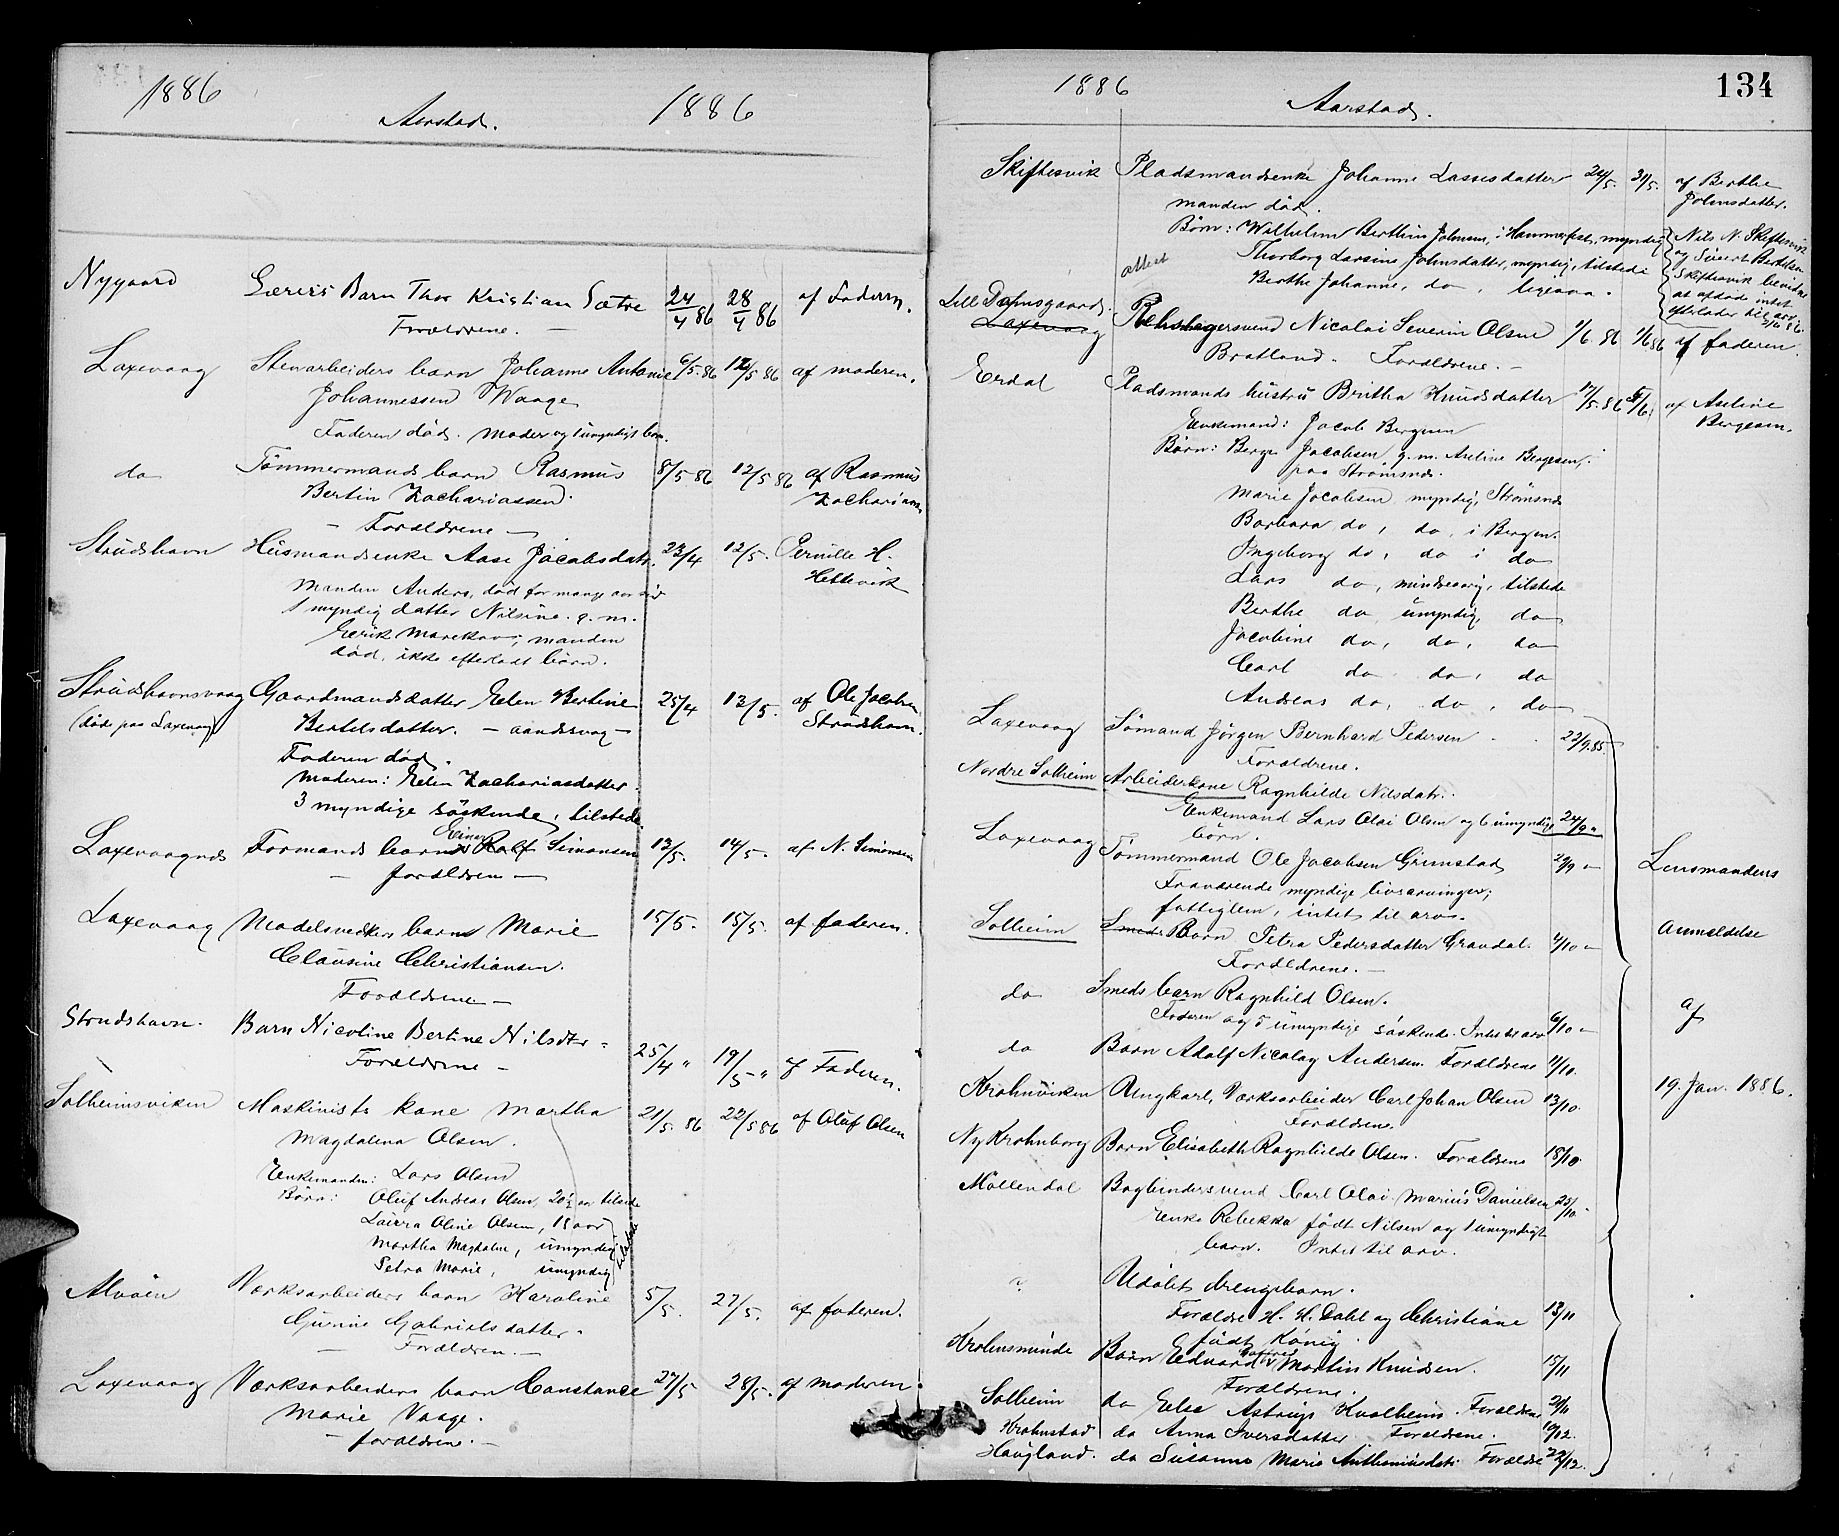 1886
Aarstad.
1886
Nygaard
Barn Thor Kristian Sætre
24/4 86
28/4 86
af Faderen.
Forældrene. —
Laxevaag
Stenarbeiders barn Johanne Antonie
6/5 86
12/5 86
af moderen.
Johannessen Waage
Faderen död. Moder og 1 umyndigt barn.
do
Tömmermands barn Rasmus
8/5 86
12/5 86
af Rasmus
Bertin Zachariassen.
Zachariassen
— Forældrene —
Strudshavn
Huusmandsenke Aase Jacobsdatr.
23/4
12/5.
Pernille H.
Hettevik
Manden Anders, död for mange aar sid
1 myndig datter Nilsine g. m.
Erik Marekov; manden
död, ikke efterladt börn.
Strudshavnsvaag
Gaardmandsdatter Elen Bertine
25/4
13/5.
af Ole Jacobsen
(död paa Laxevaag)
Bertelsdatter. — aandssvag —
Strudshavn.
Faderen död.
Moderen: Elen Zachariasdatter.
3 myndige söskende, tilstede.
Laxevaagnæs
Formands barn Einar Ralf Simonsen
13/5.
14/5.
af N. Simonsen
— forældren —
Laxevaag
Modelsnedkers barn Marie
15/5.
15/5.
af faderen.
Clausine Christiansen.
Forældrene —
Strudshavn.
Barn Nicoline Bertine Nilsdtr.
25/4 "
19/5 "
af Faderen.
Forældrene —
Solheimsviken
Maskinists kone Martha
21/5. 86
22/5 86
af Oluf Olsen
Magdalena Olsen.
Enkemanden: Lars Olsen
Börn: Oluf Andreas Olsen, 20½ aar tilstede
Laura Oline Olsen, 18 aar
Martha Magdalene, umyndig
Petra Marie, umyndig
Alvöen
Værksarbeiders barn Karoline
5/5.
27/5.
af faderen.
Gurine Gabrielsdatter.
— Forældren. —
Laxevaag
Værksarbeiders barn Constance
27/5
28/5.
af moderen.
Marie Vaage.
— forældrene. —
1886
Aarstad.
134
Skiftesvik
Pladsmandsenke Johanne Lassesdatter
24/5.
31/5.
af Berthe
Johnsdatter.
manden död.
Börn: Wilhelm Berthin Johnsen, i Hammerfest, myndig
Thorborg Larsine Johnsdatter, myndig, tilstede
Berthe Johanne, do, ligesaa.
attest
Nils N. Skiftesvik
og Sivert Bertelsen
Skiftesvik bevidner
at afdöd intet
efterlader til arv.
Lille Damsgaard.
Laxevaag
Rebslagersvend Nicolai Severin Olsen
1/6. 86
1/6 86
af faderen.
Bratland. Forældrene. —
Erdal
Pladsmands hustru Britha Knudsdatter
17/5. 86
5/6.
af Aseline
Bergesen.
Enkemand: Jacob Bergesen
Börn: Berge Jacobsen g. m. Aseline Bergesen,
paa Strömsnæs.
Marie Jacobsen myndig, Strömsnæs
Barbara do, do, i Bergen.
Ingeborg do, do i do
Lars do, mindreaarig, tilstede
Berthe do, umyndig, do
Jacobine do, do, do
Carl do. do, do
Andreas do, do, do
Laxevaag
Sömand Jörgen Bernhard Pedersen
22/9. 85
Forældrene.
Nordre Solheim
Arbeiderkone Ragnhilde Nilsdatr.
Enkemand Lars Olai Olsen og 6 umyndige
24/9 "
börn.
Laxevaag
Tömmermand Ole Jacobsen Grimstad
29/9 "
Fraværende myndige livsarvinger;
fattiglem, intet til arv.
Solheim
Smeds Barn Petra Pedersdatter Gravdal.
4/10 "
Forældrene. —
do
Smeds barn Ragnhild Olsen.
Faderen og 5 umyndige söskende. Intet til arv
6/10 "
do
Barn Adolf Nicolay Andersen. Forældrene
11/10.
Krohnviken
Ungkarl, Værksarbeider Carl Johan Olsen
13/10.
Forældrene.
Ny Krohnborg
Barn Elisabeth Ragnhilde Olsen. Forældrene
18/10
Möllendal
Bogbindersvend Carl Olai Marius Danielsen
25/10.
Enke Rebekka födt Nilsen og 1 umyndigt
barn. Intet til arv.
Udöbt drengebarn.
Forældre H. H. Dahl og Christiane
13/11
födt König.
Krohnsminde
Barn Edvard Martin Knudsen.
15/11
Forældrene.
Solheim
do Else Astrup Kvalheim. Forældrene
2/11
Krohnstad
do Anna Iversdatter Forældrene.
10/12.
Haugland.
do Susanne Marie Anthoniusdatr. Forældre
22/12.
Lensmandens
anmeldelse
af
19. Jan. 1886.